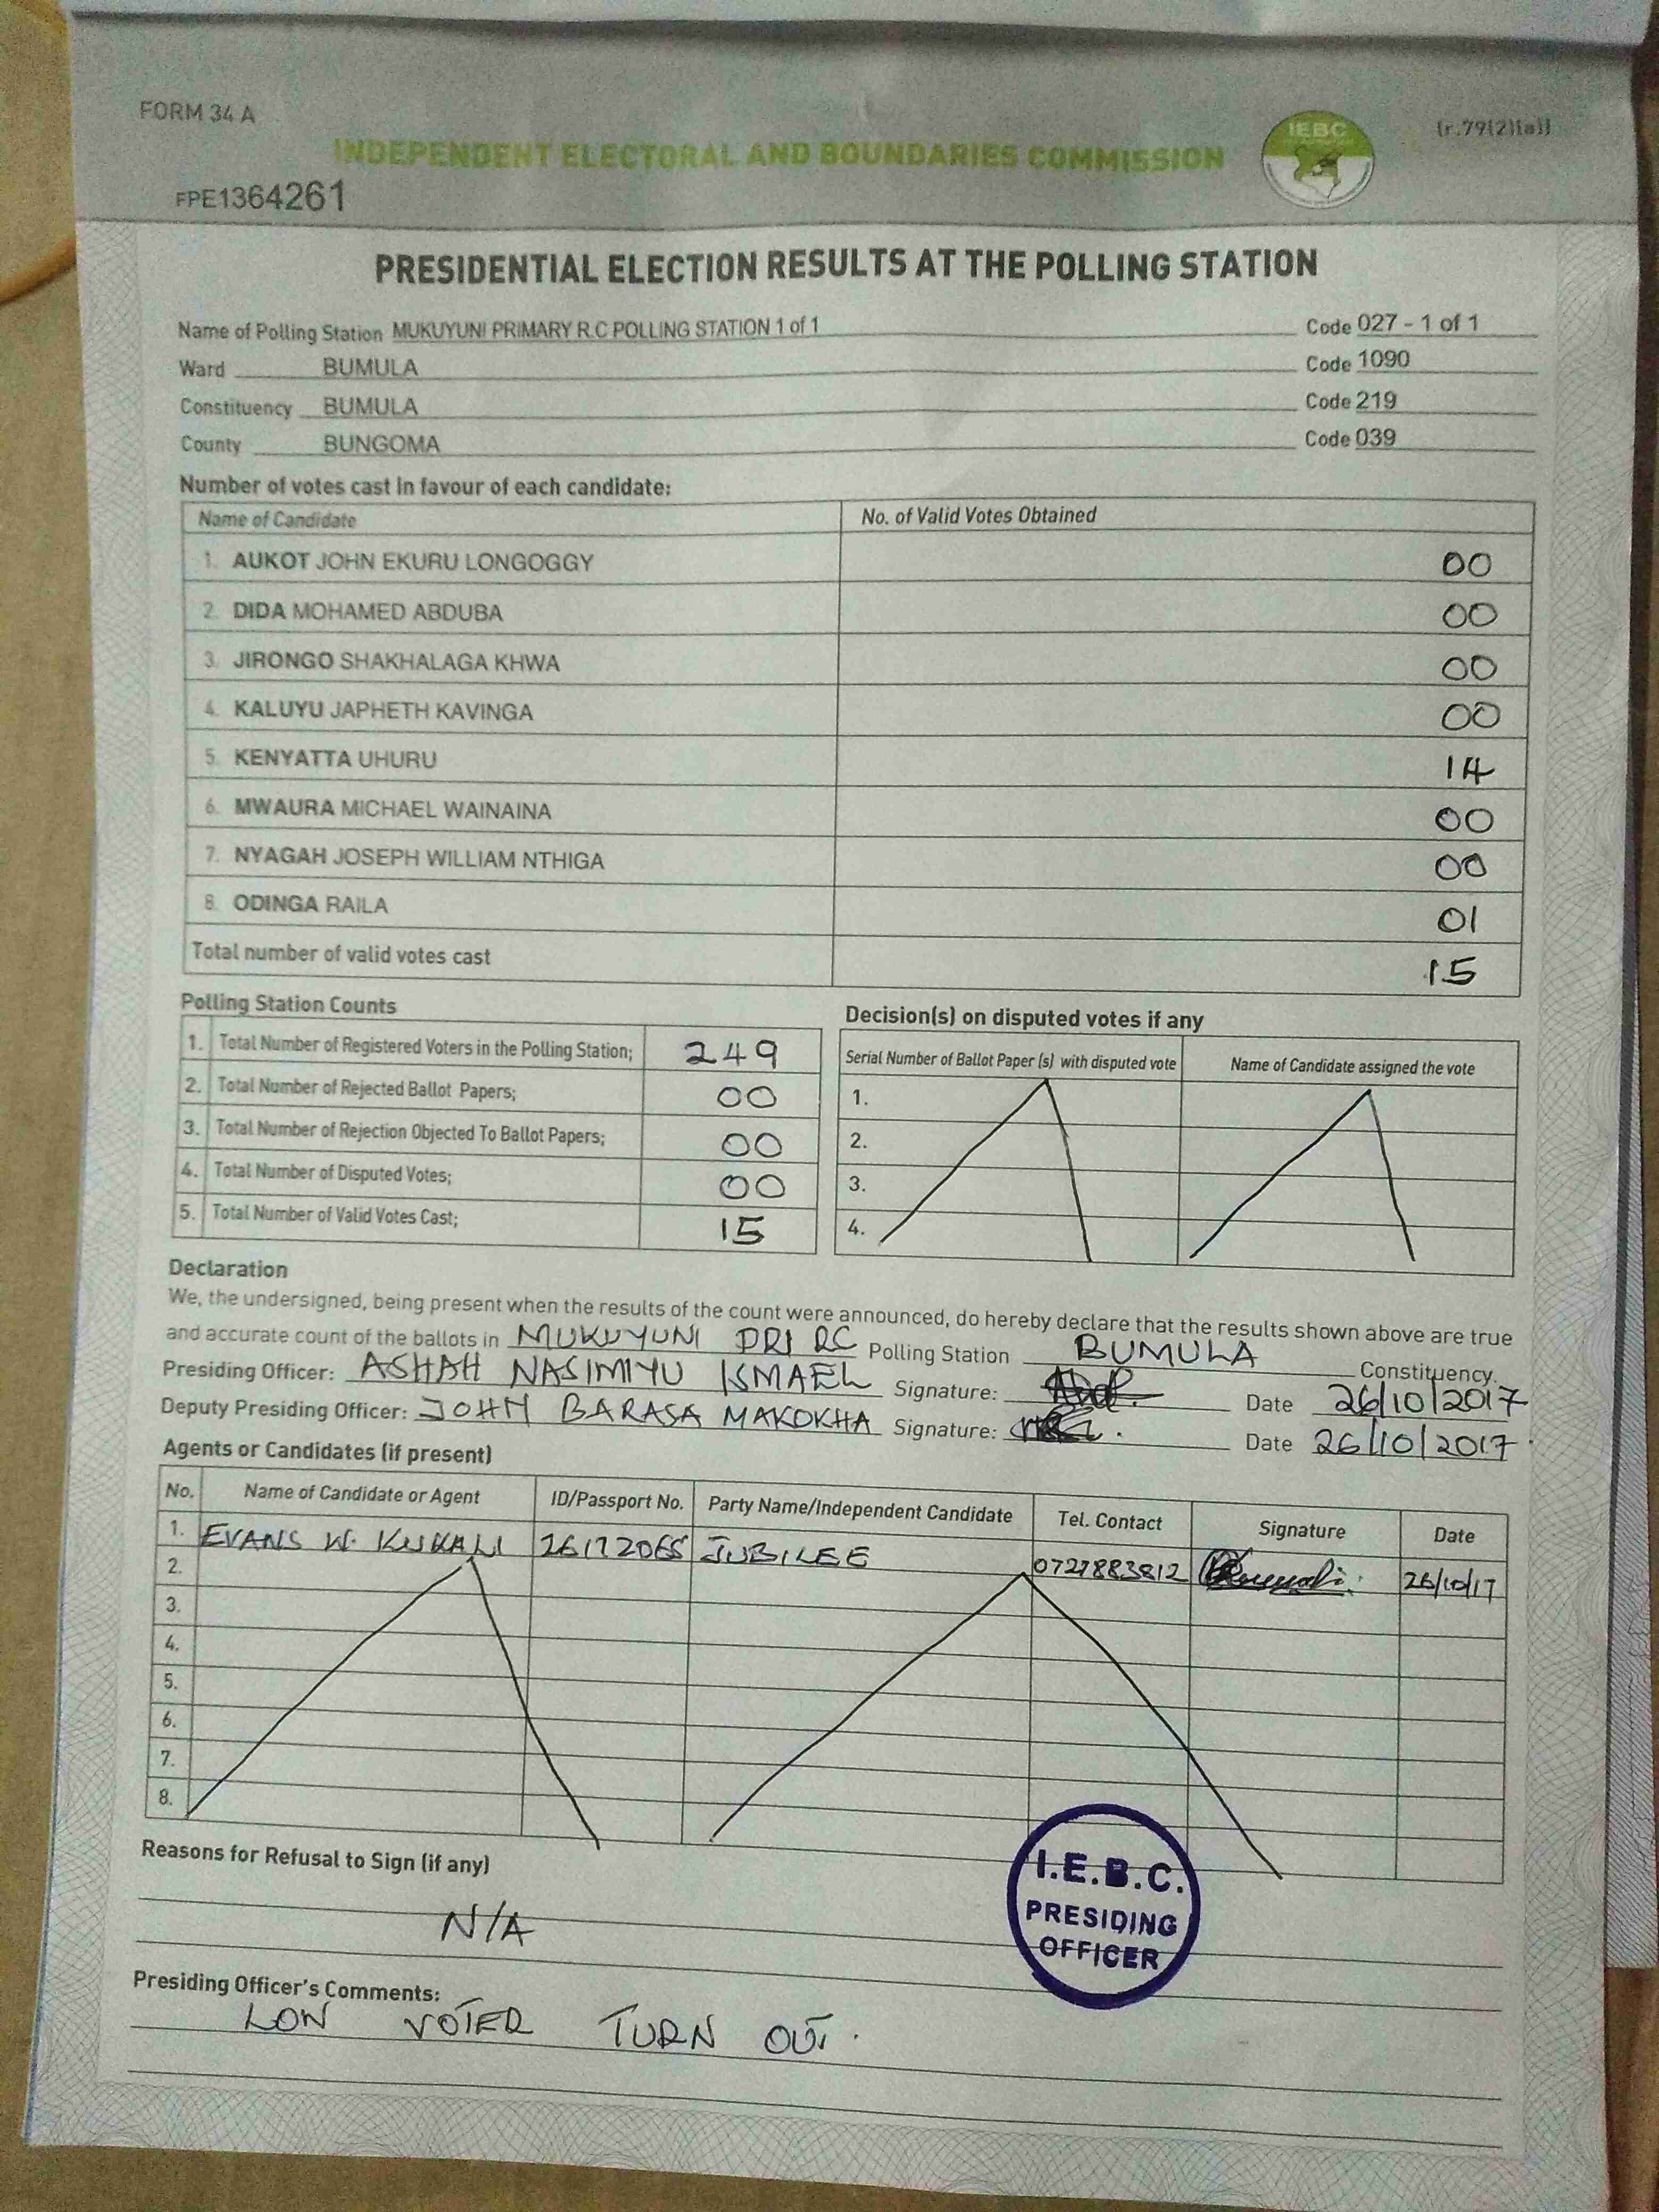 FORM 34 A
(r.79(2)(a))
IEBC
INDEPENDENT ELECTORAL AND BOUNDARIES COMMISSION
FPE1364261
PRESIDENTIAL ELECTION RESULTS AT THE POLLING STATION
Name of Polling Station MUKUYUNI PRIMARY R.C POLLING STATION 1 of 1 Code 027 - 1 of 1
Ward BUMULA Code 1090
Constituency BUMULA Code 219
County BUNGOMA Code 039
Number of votes cast in favour of each candidate:
Name of Candidate No. of Valid Votes Obtained
1. AUKOT JOHN EKURU LONGOGGY 00
2. DIDA MOHAMED ABDUBA 00
3. JIRONGO SHAKHALAGA KHWA 00
4. KALUYU JAPHETH KAVINGA 00
5. KENYATTA UHURU 14
6. MWAURA MICHAEL WAINAINA 00
7. NYAGAH JOSEPH WILLIAM NTHIGA 00
8. ODINGA RAILA 01
Total number of valid votes cast 15
Polling Station Counts
1. Total Number of Registered Voters in the Polling Station; 249
2. Total Number of Rejected Ballot Papers; 00
3. Total Number of Rejection Objected To Ballot Papers; 00
4. Total Number of Disputed Votes; 00
5. Total Number of Valid Votes Cast; 15
Decision(s) on disputed votes if any
Serial Number of Ballot Paper (s) with disputed vote Name of Candidate assigned the vote
1.
2.
3.
4.
Declaration
We, the undersigned, being present when the results of the count were announced, do hereby declare that the results shown above are true
and accurate count of the ballots in MUKUYUNI PRI RC Polling Station BUMULA Constituency.
Presiding Officer: ASHAH NASIMIYU ISMAEL Signature: Date 26/10/2017
Deputy Presiding Officer: JOHN BARASA MAKOKHA Signature: Date 26/10/2017
Agents or Candidates (if present)
No. Name of Candidate or Agent ID/Passport No. Party Name/Independent Candidate Tel. Contact Signature Date
1. EVANS W. 26172065 JUBILEE 0727883812 26/10/17
2.
3.
4.
5.
6.
7.
8.
Reasons for Refusal to Sign (if any)
N/A
I.E.B.C.
PRESIDING
OFFICER
Presiding Officer's Comments:
LOW VOTER TURN OUT.